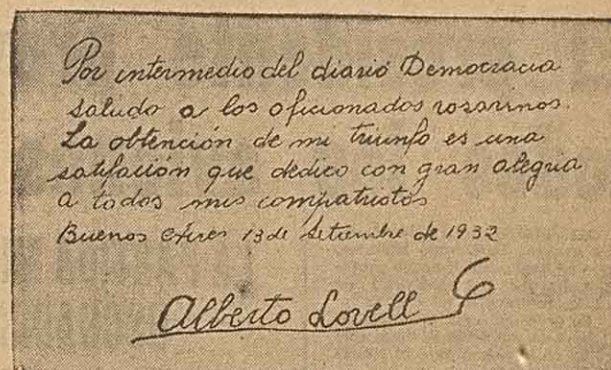 Por intermedio del diario Democracia
saludo a los aficionados rosarinos.
La obtención de mi triunfo es una
satifación que dedico con gran alegria
a todos mis compatriotas
Buenos Aires 13 de Setiembre de 1932
Alberto Lovell